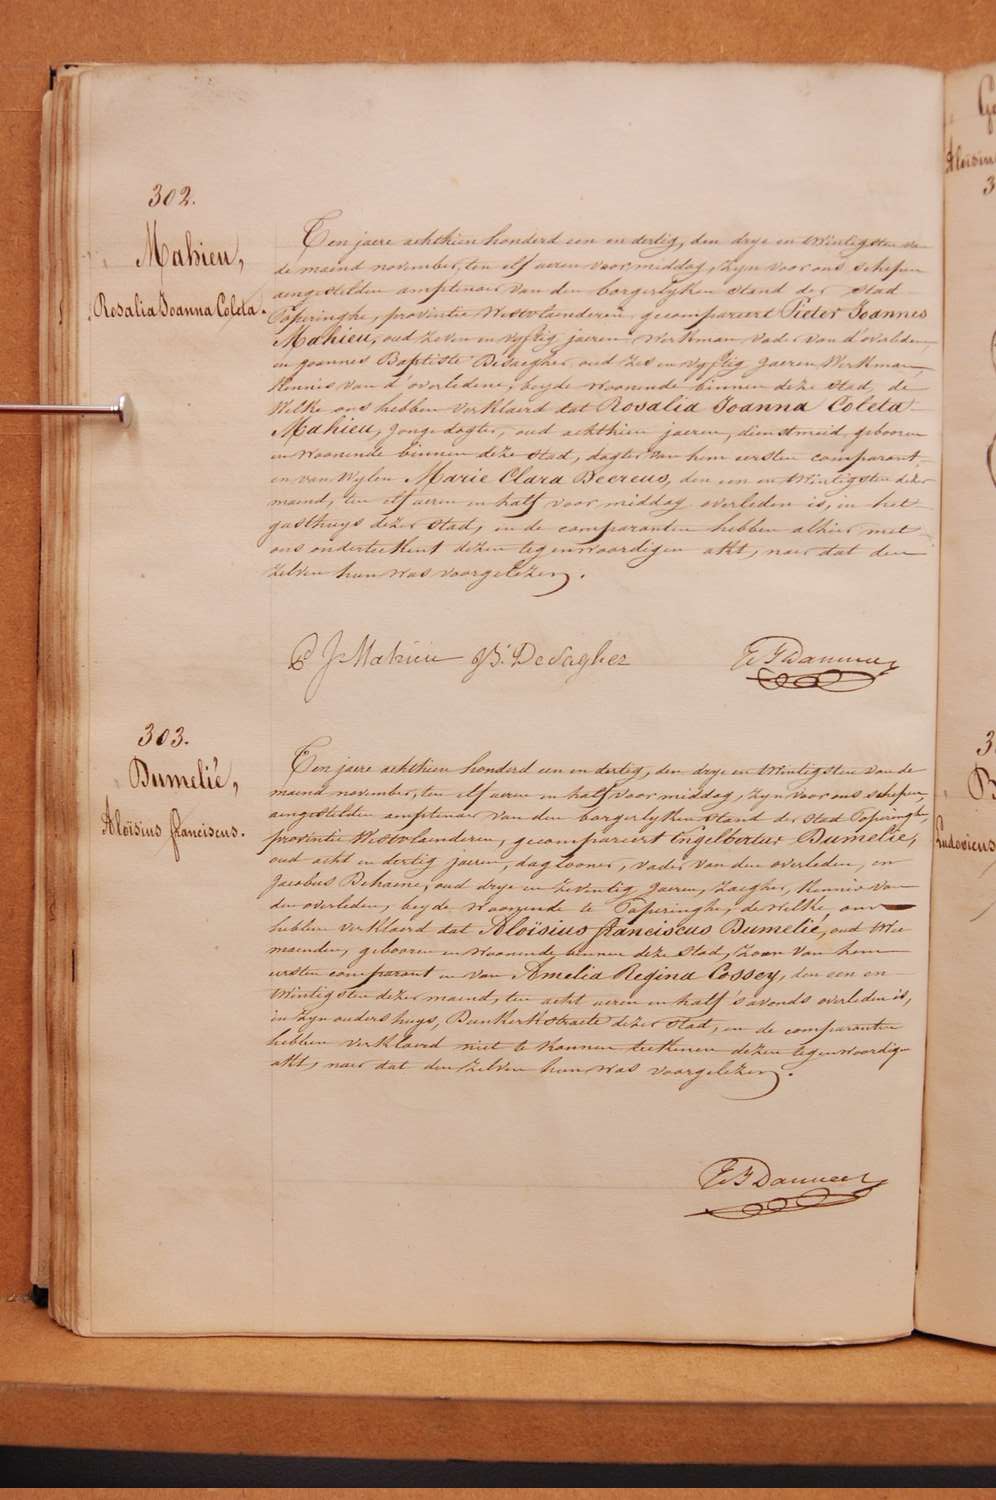 302.
Mahieu,
Rosalia Joanna Coleta.
Ten jaere achthien honderd een en dertig, den drye en twintigsten van
de maend november, ten elf ueren voor middag, zyn voor ons schepen
aengestelden amptenaer van den borgerlyken stand der stad
Poperinghe, provintie Westvlaenderen, gecompareert Pieter Joannes
Mahieu, oud zeven en vyftig jaeren, werkman, vader van d'overledene
en joannes Baptiste Desaegher, oud zes en vyftig jaeren, Werkman,
kennis van d'overledene, beyde woonende binnen deze stad, de
Welke ons hebben verklaerd dat Rosalia Joanna Coleta
Mahieu, jonge dogter, oud achthien jaeren, dienstmeid, gebooren
en woonende binnen deze stad, dogter van hem eersten comparant,
en van Wylen Marie Clara Beereus, den een en twintigsten dezer
maend, ten elf ueren en half voor middag overleden is, in het
gasthuys dezer stad, en de comparanten hebben alhier met
ons onderteekent dezen tegenwoordigen akt, naer dat den
zelven hun was voorgelezen.
P J Mahieu B. Desagher
303.
Dumelié,
Aloïsius franciscus.
Ten jaere achthien honderd een en dertig, den drye en twintigsten van de
maend november, ten elf ueren en half voor middag, zyn voor ons schepen,
aengestelden amptenaer van den borgerlyken stand der stad Poperinghe,
provintie Westvlaenderen, gecompareert Engelbertus Dumelié,
oud acht en dertig jaeren, daglooner, vader van den overleden, en
Jacobus Dehaene, oud drye en zeventig jaeren, zaegher, kennis van
den overleden, beyde woonende te Poperinghe, de welke ons
hebben verklaerd dat Aloïsius franciscus Dumelié, oud
maenden, gebooren en woonende binnen deze stad, zoon van hem
eersten comparant en van Amelia Regina Cossey, den een en
twintigsten dezer maend, ten acht ueren en half 's avonds overleden is,
in zyn ouders huys, Dunkerkstraete dezer stad, en de comparanten
hebben verklaerd niet te konnen teekenen dezen tegenwoordigen
akt, naer dat den zelven hun was voorgelezen.